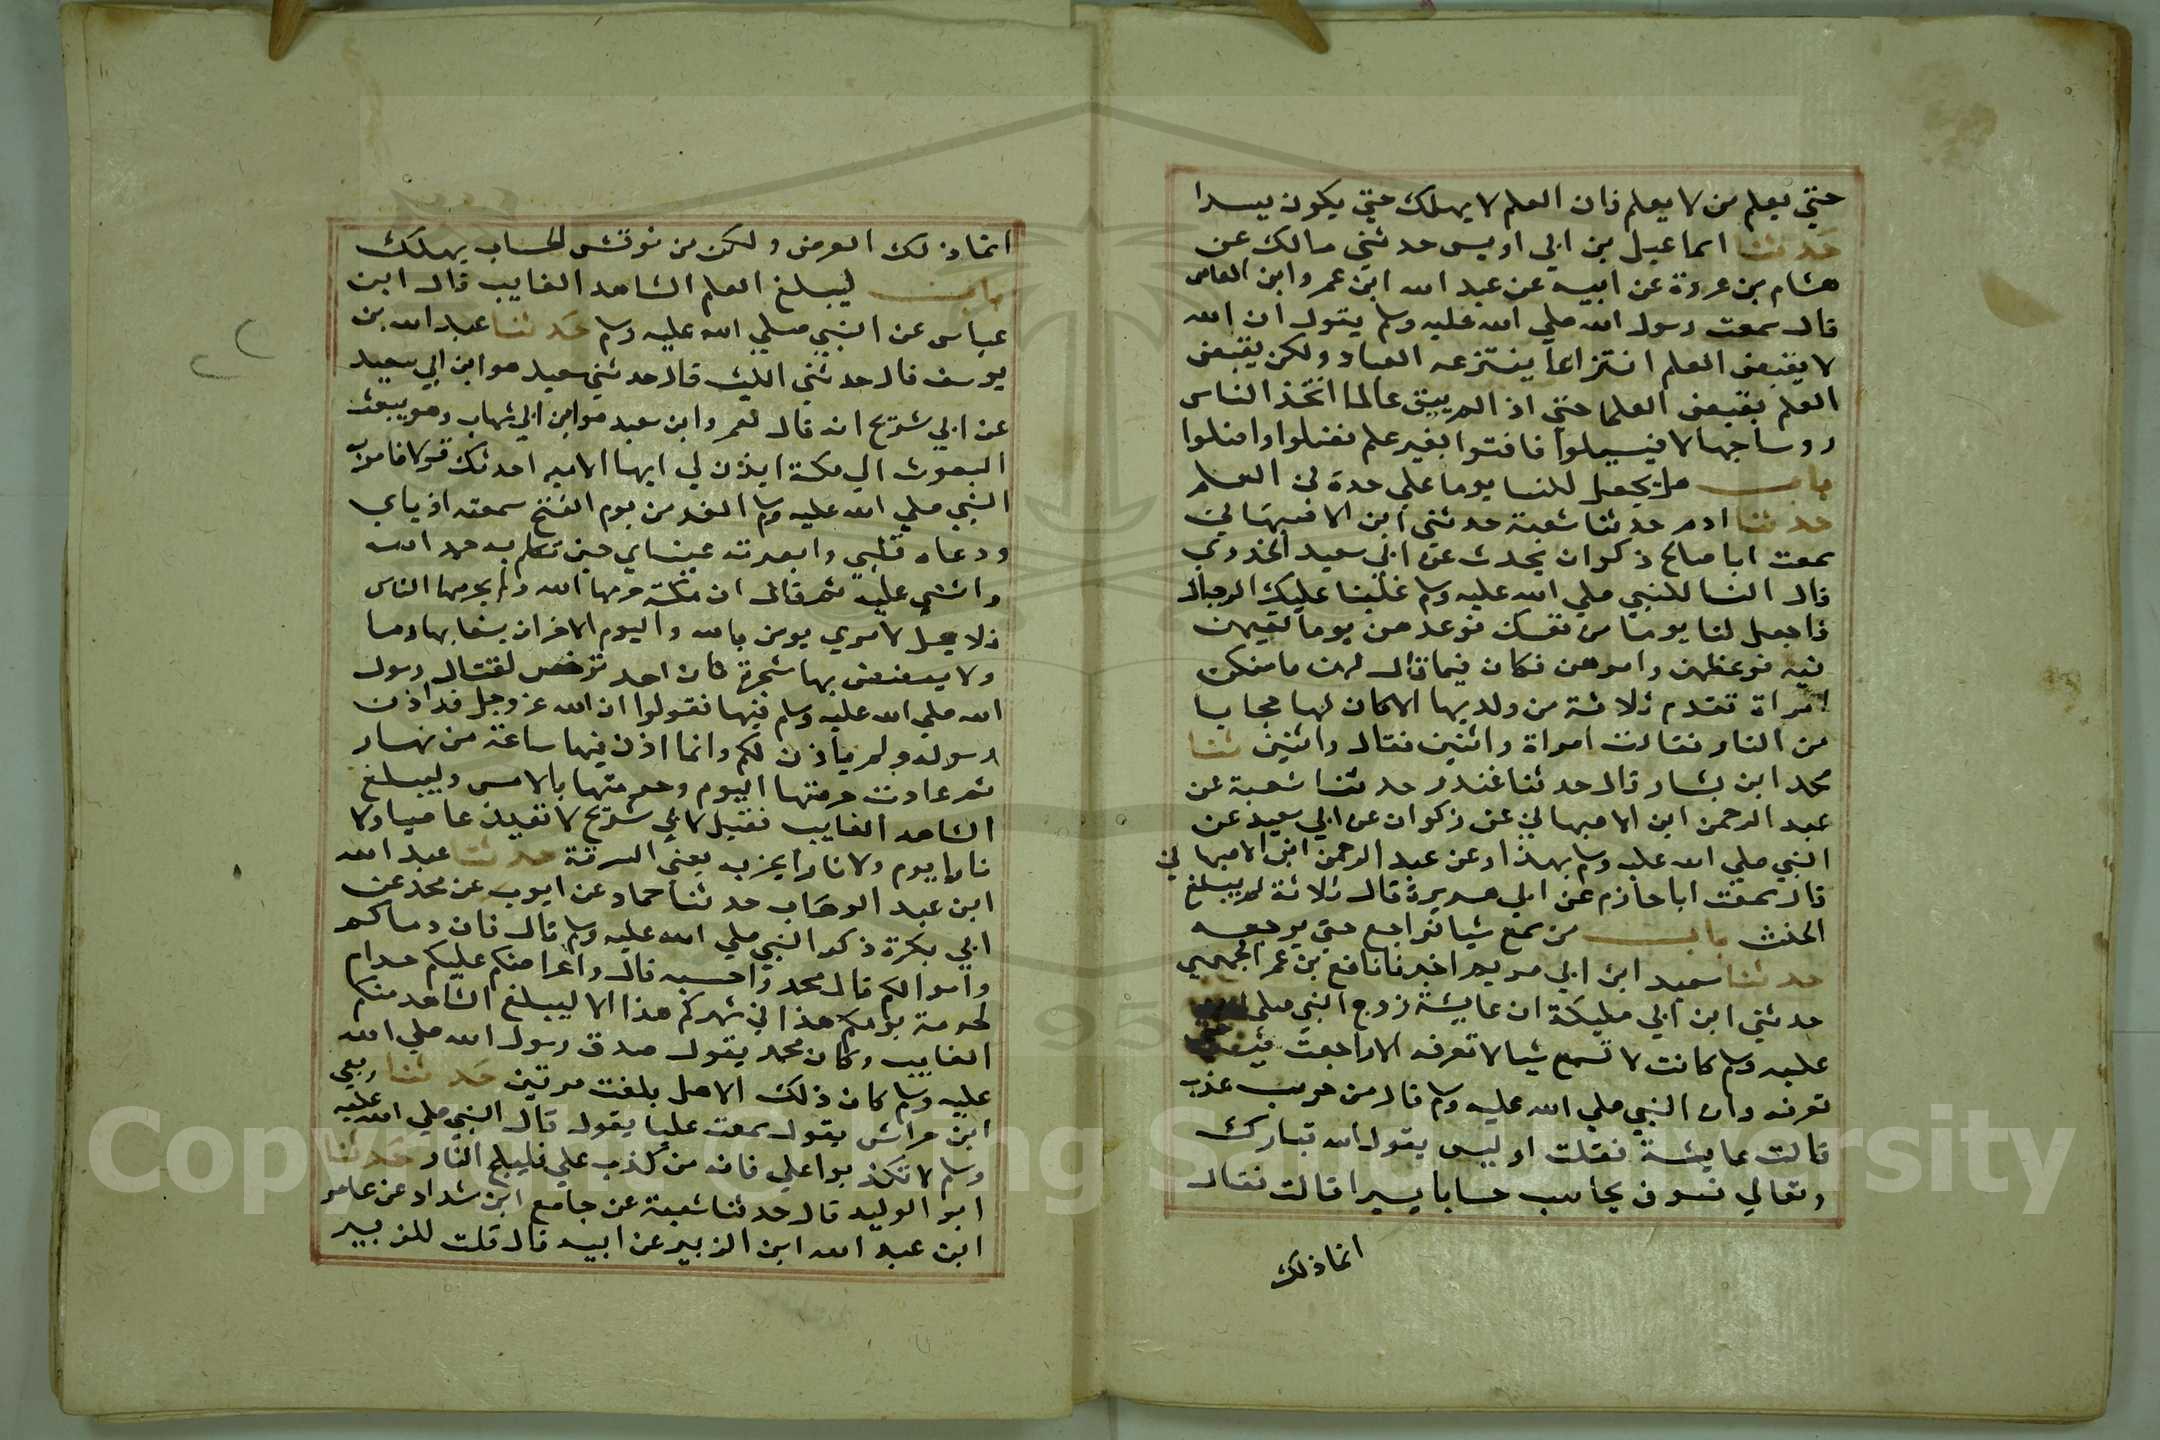 حتي يعلم من لا يعلم فان العلم لا يهلك حتي يكون يسرا
حدثنا اسماعيل بن ابي اويس حدثني مالك عن
هشام بن عروة عن ابيه عن عبد الله ابن عمر وابن العاص
قال سمعت رسول الله صلي الله عليه وسلم يقول ان الله
لا يقبض العلم انتزاعا ينتزعه العباد ولكن يقبض
العلم بقبض العلما حتي اذا لم يبق عالما اتخذ الناس
روسا جهالا فيسيلوا فافتوا بغير علم فضلوا واضلوا
باب هل يجعل للنسا يوما علي حدة في العلم
حدثنا ادم حدثنا شعبة حدثني ابن الاصبهاني
سمعت ابا صالح ذكوان يحدث عن ابي سعيد الخدري
قال النسا للنبي صلي الله عليه وسلم غلبنا عليك الرجال
فاجعل لنا يوما من نفسك فوعدهن يوما لقيهن
فيه فوعظهن وامرهن فكان فيما قال لهن ما منكن
امراة تقدم ثلاثة من ولديها الا كان لها حجابا
من النار فقالت امراة واثنين فقال واثنين ثنا
محمد ابن بشار قال حدثنا غندر حدثنا شعبة عن
عبد الرحمن ابن الاصبهاني عن ذكوان عن ابي سعيد عن
النبي صلي الله عليه وسلم بهذا وعن عبد الرحمن ابن الاصبهاني
قال سمعت ابا حازم عن ابي هريرة قال ثلاثة لم يبلغ
الحنث باب من سمع شيا فراجع حتي يرجعه
حدثنا سعيد ابن ابي مريم اخبرنا نافع بن عمر الجمحي
حدثني ابن ابي مليكة ان عايشة زوج النبي صلي
عليه وسلم كانت لا تسمع شيا لا تعرفه الا راجعت
تعرفه وان النبي صلي الله عليه وسلم قال من حوسب عذب
قالت عايشة فقلت اوليس يقول الله تبارك
وتعالي فسوف يحاسب حسابا يسيرا قالت فقال
انما ذلك
انما ذلك العرض ولكن من نوقش الحساب يهلك
باب ليبلغ العلم الشاهد الغايب قال ابن
عباس عن النبي صلي الله عليه وسلم حدثنا عبد الله بن
يوسف قال حدثني الليث قال حدثني سعيد هو ابن ابي سعيد
عن ابي شريح انه قال لعمر وابن سعيد هو ابن ابي شهاب وهو يبعث
البعوث الي مكة ايذن لي ايها الامير احدثك قولا قام به
النبي صلي الله عليه وسلم الغد من يوم الفتح سمعته اذناي
ودعاه قلبي وابصرته عيناي حين تكلم به حمد الله
واثني عليه ثم قال ان مكة حرمها الله ولم يحرمها الناس
فلا يحل لامري يومن بالله واليوم الاخر ان يسفا بها دما
ولا يعضض بها شجرة فان احد ترخص لقتال رسول
الله صلي الله عليه وسلم فيها فقولوا ان الله عز وجل قد اذن
رسوله ولم ياذن لكم وانما اذن فيها ساعة من نهار
ثم عادت حرمتها اليوم وحرمتها بالامس وليبلغ
الشاهد الغايب فقيل لابي شريح لا تعيذ عاصيا ولا
فارا بيوم ولا فارا بخرب يعني السرقة حدثنا عبد الله
ابن عبد الوهاب حدثنا حماد عن ايوب عن محمد عن
ابي بكرة ذكر النبي صلي الله عليه وسلم قال فان دماكم
واموالكم قال محمد واحسبه قال واعراضكم عليكم حرام
لحرمة يومكم هذا في شهركم هذا الا ليبلغ الشاهد منكم
الغايب وكان محمد يقول صدق رسول الله صلي الله
عليه وسلم كان ذلك الا هل بلغت مرتين حدثنا ربعي
ابن حراش يقول سمعت عليا يقول قال النبي صلي الله عليه
وسلم لا تكذبوا علي فانه من كذب علي فليلج النار حدثنا
ابو الوليد قال حدثنا شعبة عن جامع ابن شداد عن عامر
ابن عبد الله ابن الزبير عن ابيه قال قلت للزبير
Copyright © King Saud University